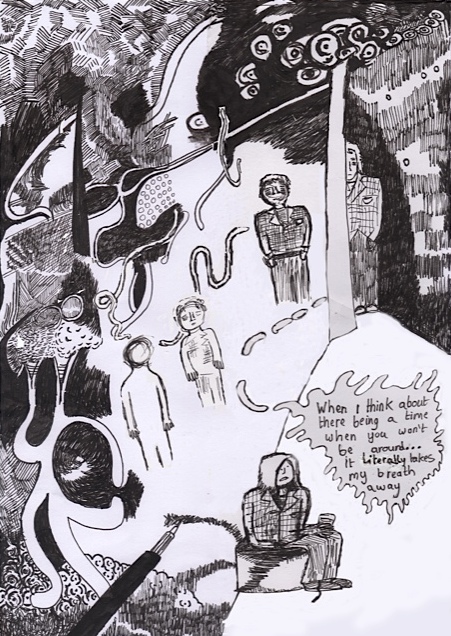 When I think about
there being a time
when you won't
be around...
It literally takes
my breath
away